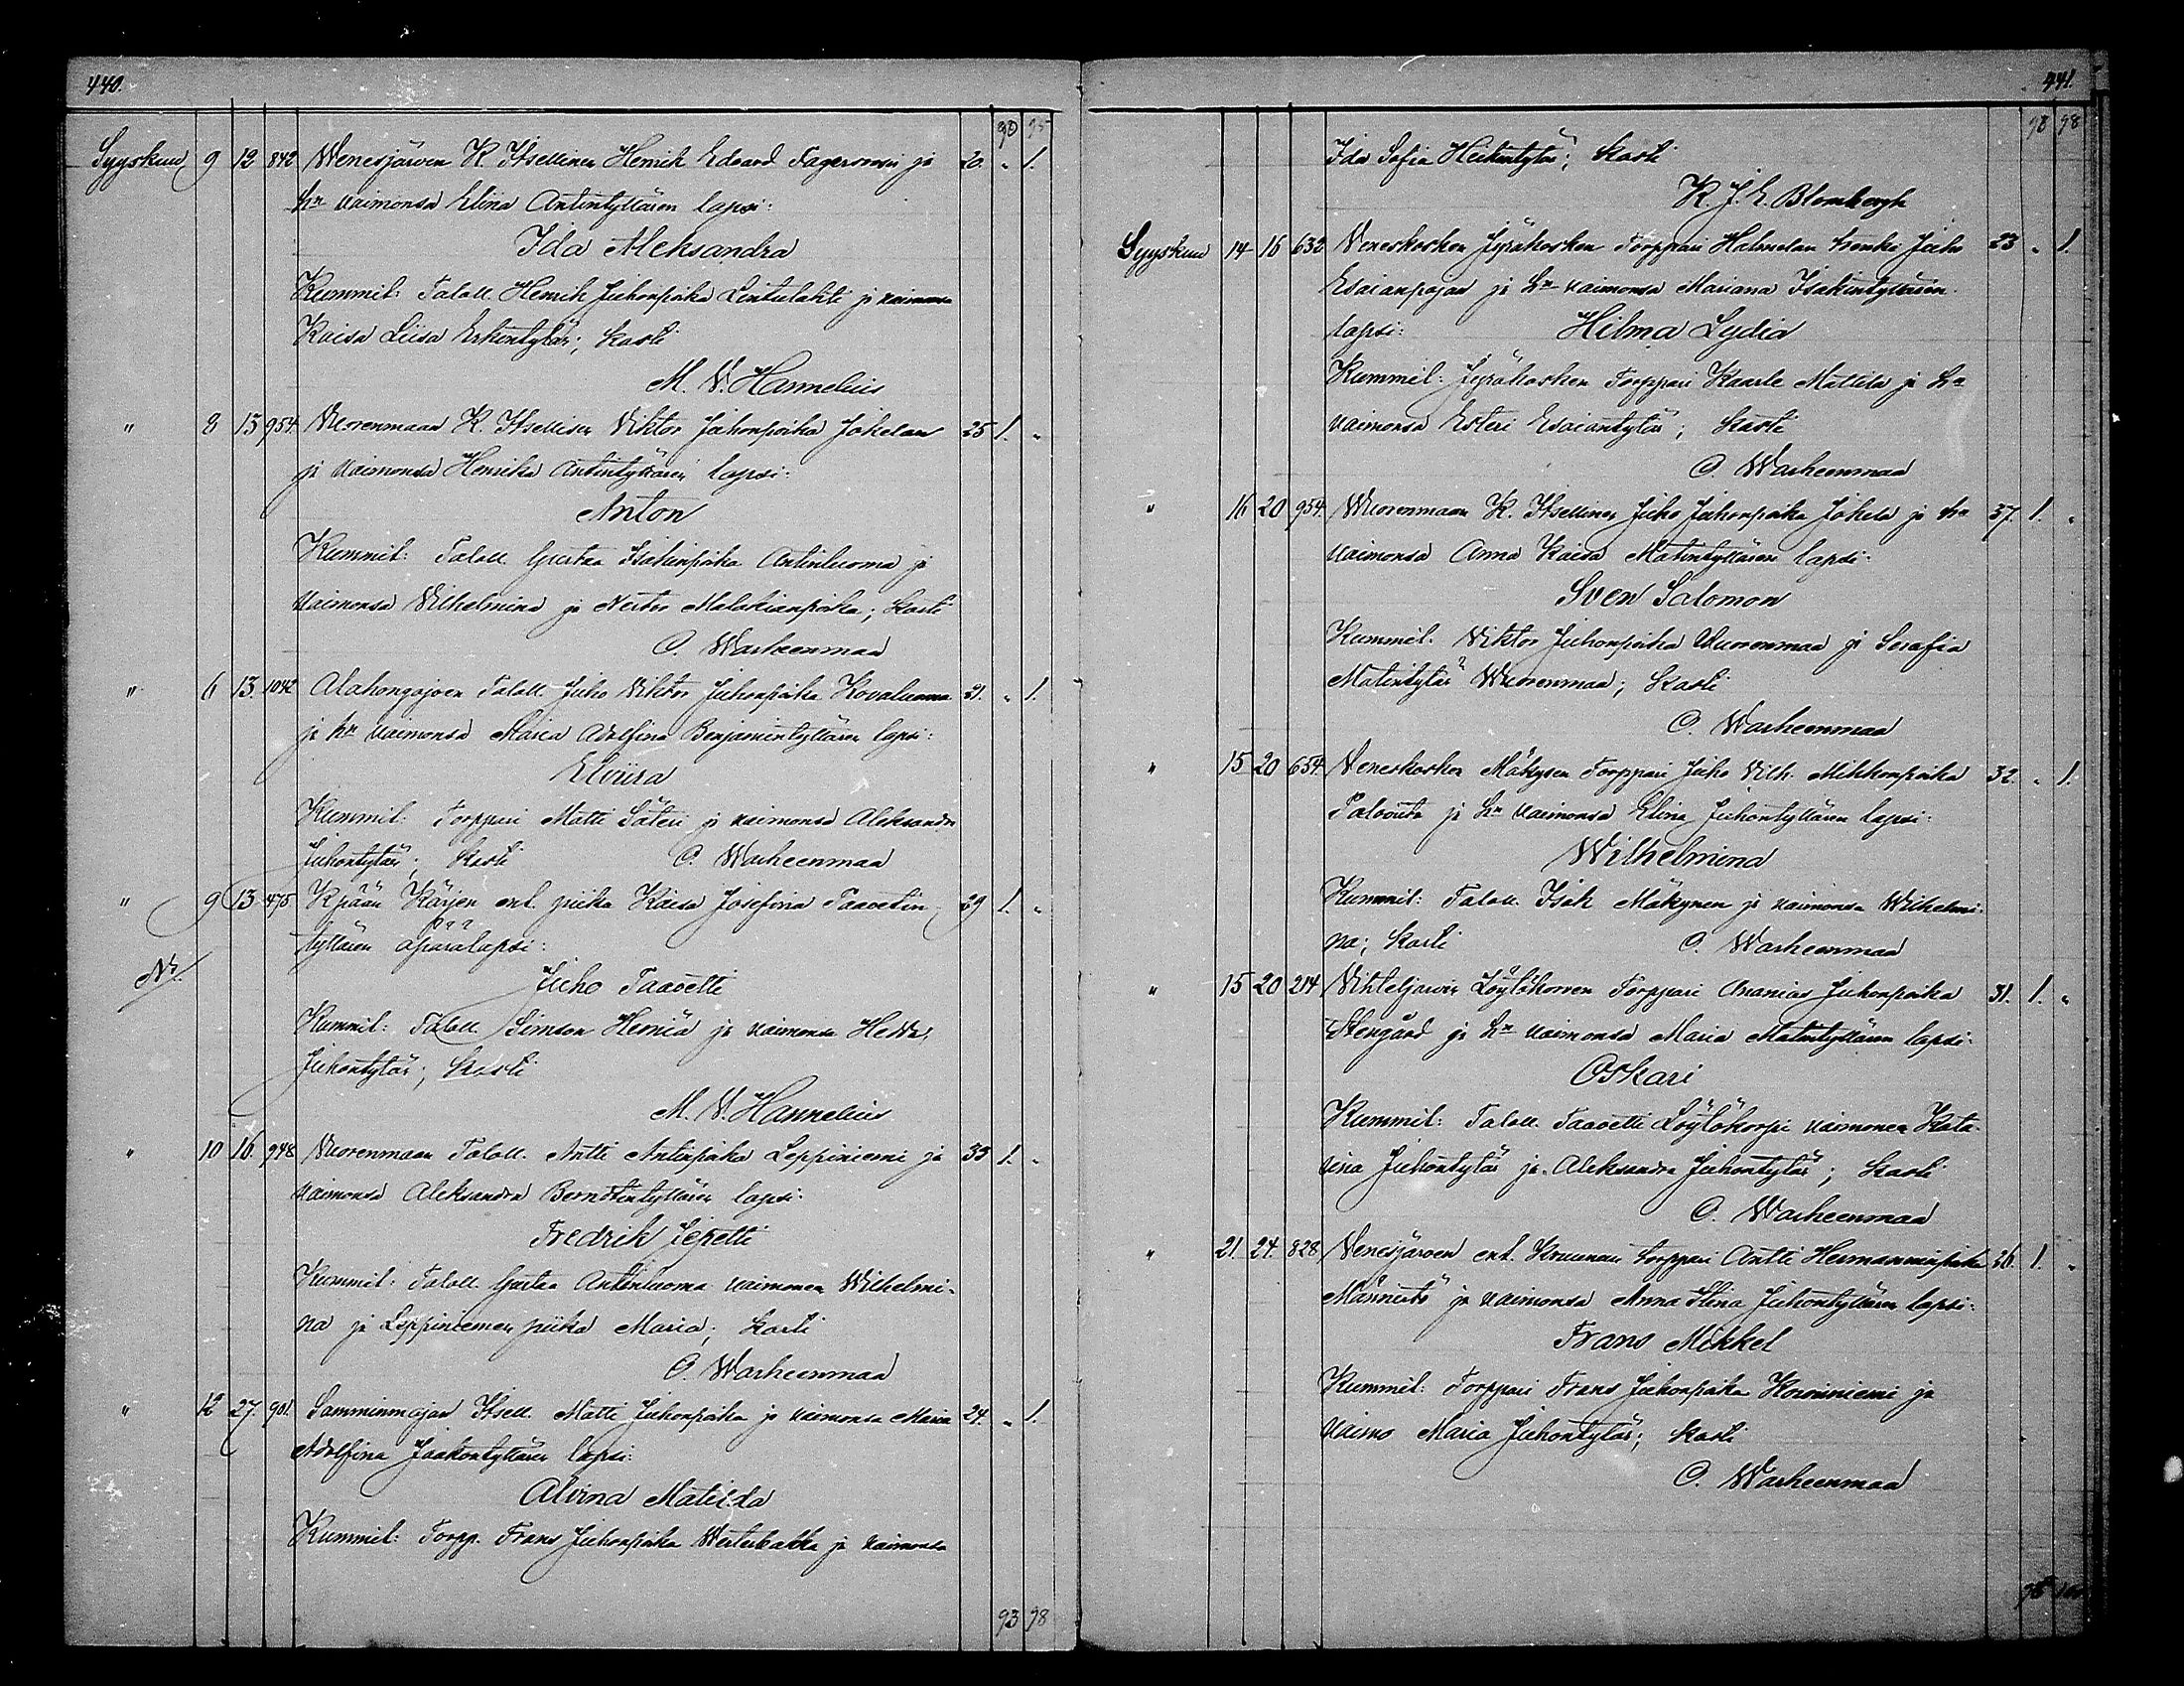 440.
90 95
Syyskuu 9 12 842 Wenesjärven K. Itsellinen Henrik Edvard Fagerroosi ja 20. " 1.
hn vaimonsa Elina Antintyttären lapsi:
Ida Aleksandra
Kummit: Taloll. Henrik Juhonpoika Lintulahti ja vaimonsa
Kaisa Liisa Erkintytär; kasti
M. V. Hannelius
" 8 13 954. Vuorenmaan K. Itsellisen Viktor Juhonpoika Jokelan 25 1. "
ja vaimonsa Henrika Antintyttären lapsi:
Anton
Kummit: Taloll. Gustaa Isakinpoika Antinluoma ja
vaimonsa Wilhelmina ja Nestor Malakianpoika; kasti
O. Warheenmaa
" 6 13 1042 Alahongajoen Taloll. Juho Viktor Juhonpoika Kovaluoma 21. " 1.
ja hn vaimonsa Maria Adolfina Benjamintyttären lapsi:
Elviira
Kummit: Torppari Matti Säteri ja vaimonsa Aleksandra
Juhontytär; kasti O. Warheenmaa
" 9 13 475 Kpään Kärjen ent. piika Kaisa Josefina Taavetin- 29 1. "
tyttären äpärälapsi:
No.
Juho Taavetti
Kummit: Taloll. Simson Herniä ja vaimonsa Hedda
Juhontytär; kasti
M. V. Hannelius
" 10 16. 948 Vuorenmaan Taloll. Antti Antinpoika Leppiniemi ja 35 1. "
vaimonsa Aleksandra Berndtintyttären lapsi:
Fredrik Jepetti
Kummit: Taloll. Gustaa Antinluoma vaimonen Wilhelmi-
na ja Leppiniemen piika Maria; kasti
O. Warheenmaa
" 12 27. 901. Samminmajan Itsell. Matti Juhonpoika ja vaimonsa Maria 24. " 1.
Adolfina Jaakontyttären lapsi:
Alvina Matilda
Kummit: Torpp. Frans Juhonpoika Westerbakka ja vaimonsa
93 98
441.
93 98
Ida Sofia Heikintytär; kasti
K. J. E. Blombergh
Syyskuu 14 16 632 Veneskosken Jyräkosken Torppari Halmelan Juho 23 " 1.
Esaianpojan ja hn vaimonsa Mariana Isakintyttären
lapsi: Hilma Lydia
Kummit: Jyräkosken Torppari Kaarle Mattila ja hn
vaimonsa Esteri Esaiantytär; kasti
O. Warheenmaa
" 16 20 954 Wuorenmaan K. Itsellinen Juho Juhonpoika Jokela ja hn 37. 1. "
vaimonsa Anna Kaisa Matintyttären lapsi:
Sven Salomon
Kummit. Viktor Juhonpoika Vuorenmaa ja Serafia
Matintytär Wuorenmaa; kasti
O. Warheenmaa
" 15 20 654. Veneskosken Mäkysen Torppari Juho Vilh. Mihkonpoika 32. " 1.
Palomäk ja hn vaimonsa Elina Juhontyttären lapsi:
Wilhelmina
Kummit: Taloll. Isak Mäkynen ja vaimonsa Wilhelmi-
na; kasti O. Warheenmaa
" 15 20 214 Vihteljärvin Löytökorven Torppari Ananias Juhonpoika 31. 1. "
Stengård ja hn vaimonsa Maria Matintyttären lapsi:
Oskari
Kummit: Taloll. Taavetti Löytökorpi vaimonen Kata-
riina Juhontytär ja Aleksandra Juhontytär; kasti
O. Warheenmaa
" 21. 24. 828. Venesjärven ent. Kruunun torppari Antti Hermanninpoika 26. 1. "
Männistö ja vaimonsa Anna Stina Juhontyttären lapsi:
Frans Mikkel
Kummit: Torppari Frans Juhonpoika Koroniemi ja
vaimo Maria Juhontytär; kasti
O. Warheenmaa
98 100